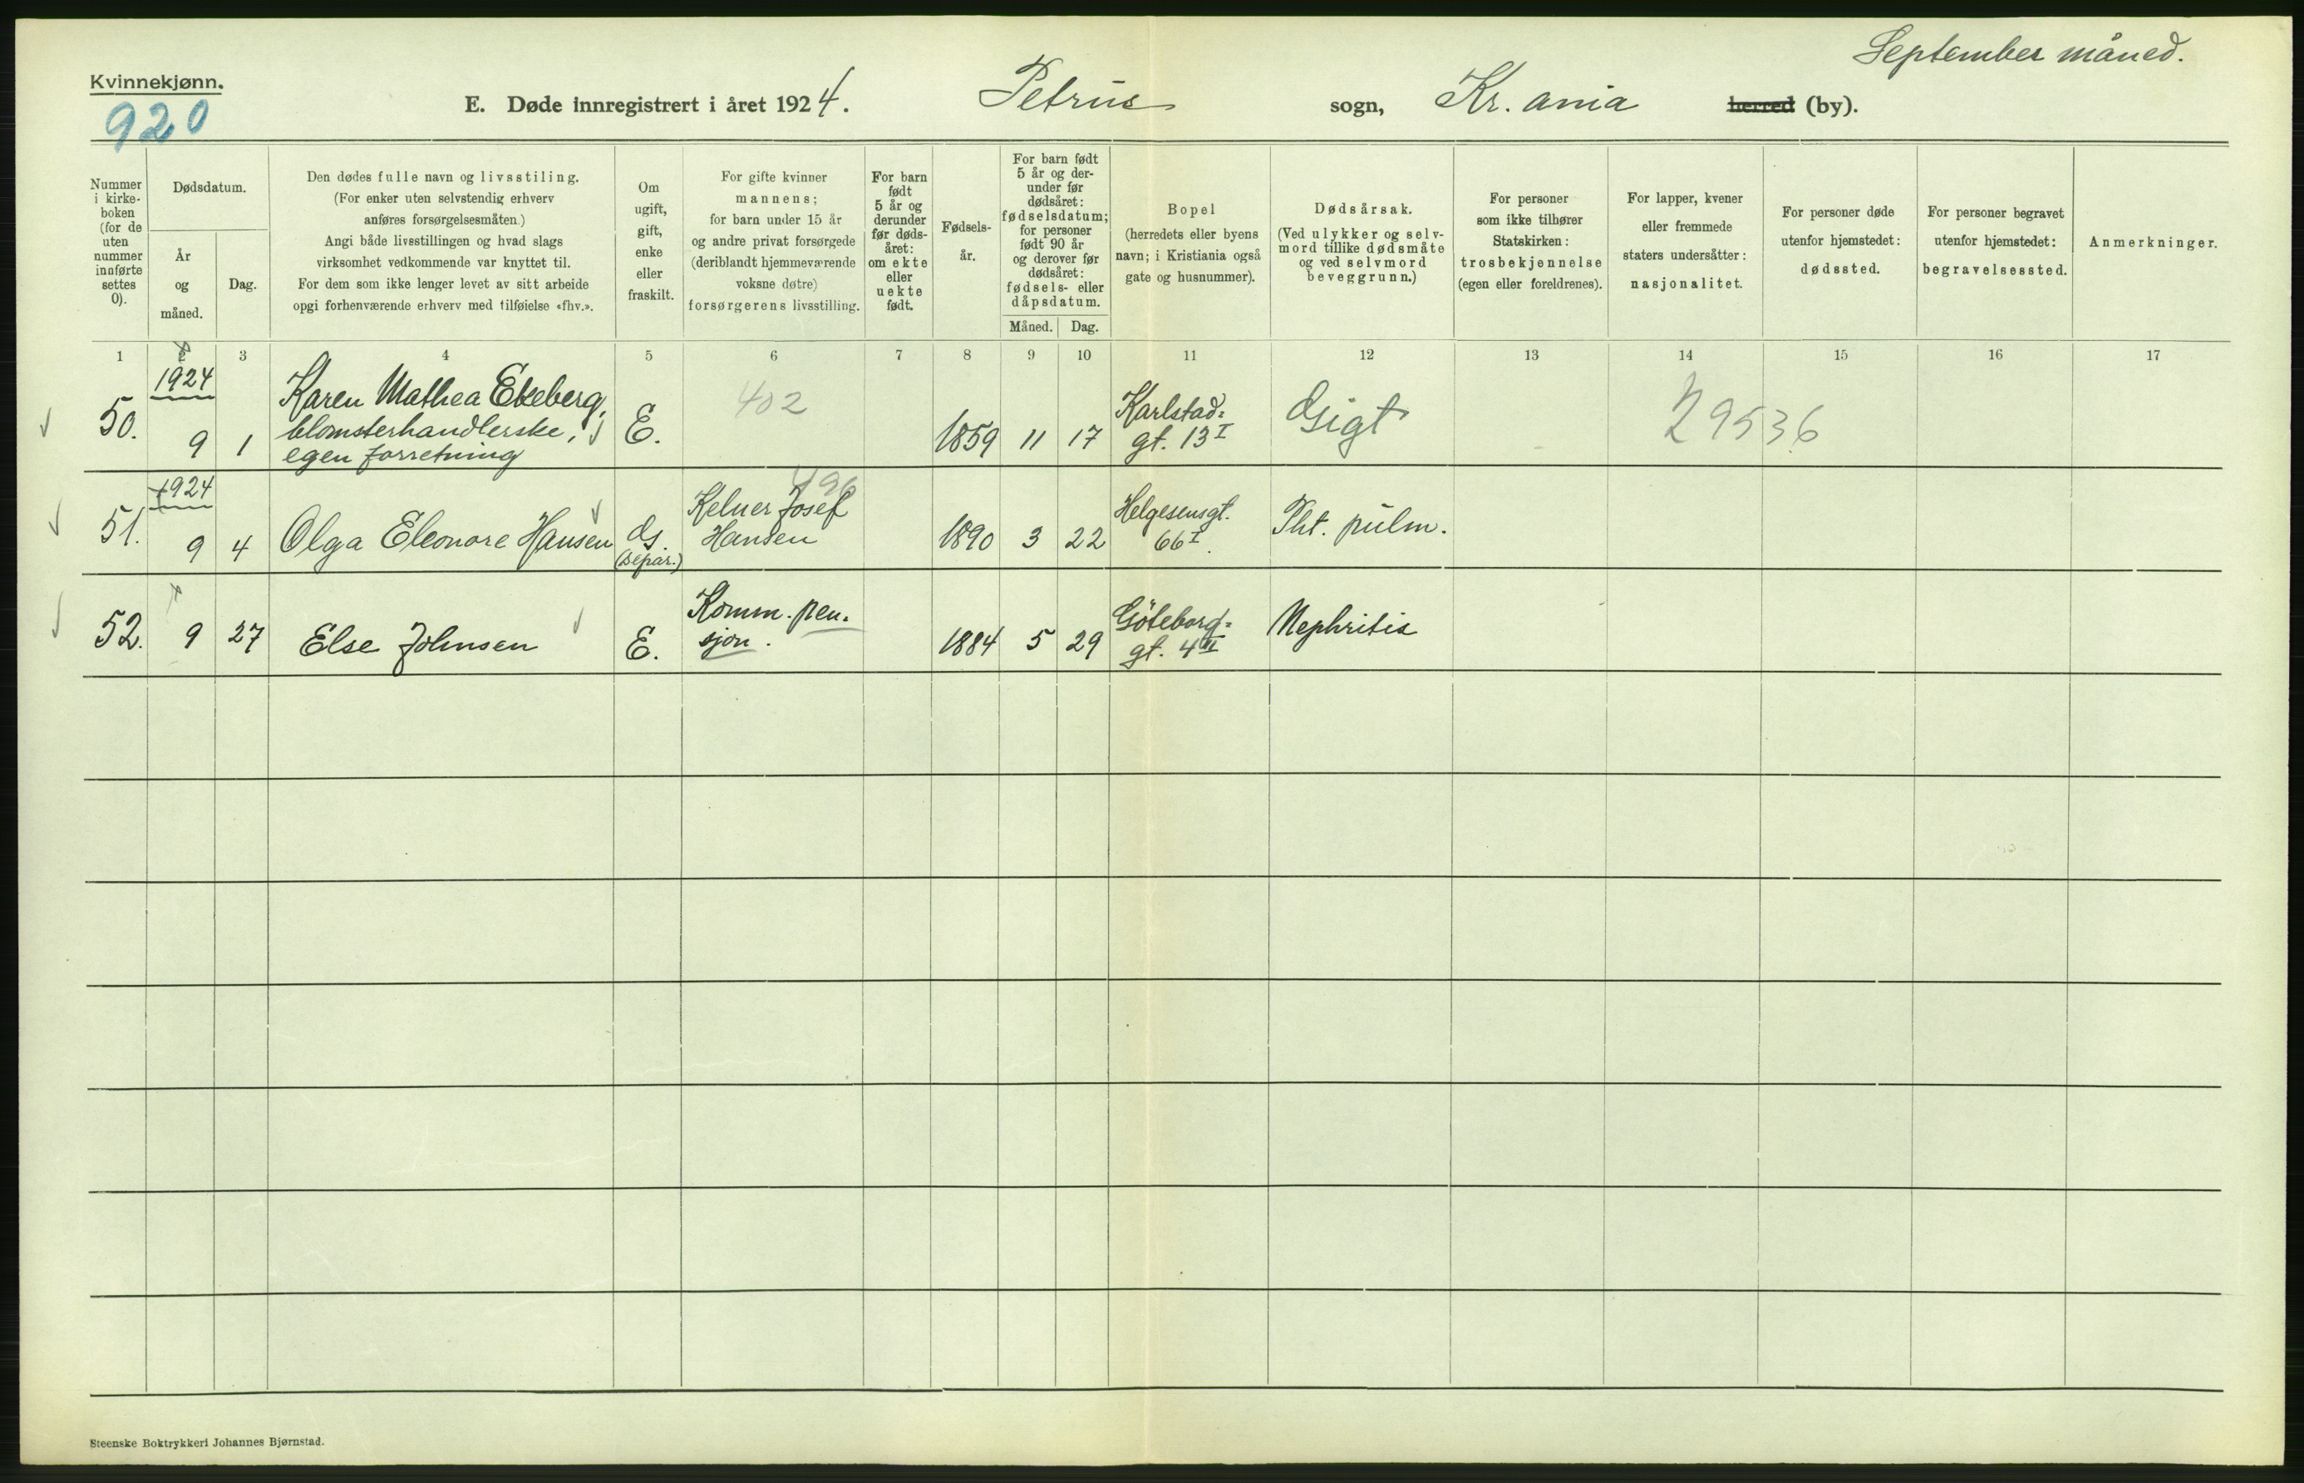 September måned.
Kvinnekjønn.
920
E. Døde innregistrert i året 1924. Petrus sogn, Kr.ania herred (by).
Nummer i kirkeboken (for de uten nummer innførte settes 0).
Dødsdatum.
År og måned.
Dag.
Den dødes fulle navn og livsstiling.
(For enker uten selvstendig erhverv
anføres forsørgelsesmåten.)
Angi både livsstillingen og hvad slags
virksomhet vedkommende var knyttet til.
For dem som ikke lenger levet av sitt arbeide
opgi forhenværende erhverv med tilføielse «fhv.».
Om
ugift,
gift,
enke
eller
fraskilt.
For gifte kvinner
mannens;
for barn under 15 år
og andre privat forsørgede
(deriblandt hjemmeværende
voksne døtre)
forsørgerens livsstilling.
For barn
født
5 år og
derunder
før døds-
året:
om ekte
eller
uekte
født.
Fødsels-
år.
For barn født
5 år og der-
under før
dødsåret:
fødselsdatum;
for personer
født 90 år
og derover før
dødsåret:
fødsels- eller
dåpsdatum.
Måned. Dag.
Bopel
(herredets eller byens
navn; i Kristiania også
gate og husnummer).
Dødsårsak.
(Ved ulykker og selv-
mord tillike dødsmåte
og ved selvmord
beveggrunn.)
For personer
som ikke tilhører
Statskirken:
trosbekjennelse
(egen eller foreldrenes).
For lapper, kvener
eller fremmede
staters undersåtter:
nasjonalitet.
For personer døde
utenfor hjemstedet:
dødssted.
For personer begravet
utenfor hjemstedet:
begravelsessted.
Anmerkninger.
1 2 3 4 5 6 7 8 9 10 11 12 13 14 15 16 17
1924
50. 9 1
Karen Mathea Ekeberg,
blomsterhandlerske,
egen forretning
E.
402
1859 11 17
Karlstad=
gt. 13 I
Gigt
29536
1924
51. 9 4
Olga Eleonore Hansen
G.
(separ.)
496
Kelner Josef
Hansen
1890 3 22
Helgesensgt.
66 I.
Pht. pulm.
52. 9 27
Else Johnsen
E.
Komm. pen-
sjon.
1884 5 29
Göteborg=
gt. 4 II
Nephritis
Steenske Boktrykkeri Johannes Bjørnstad.